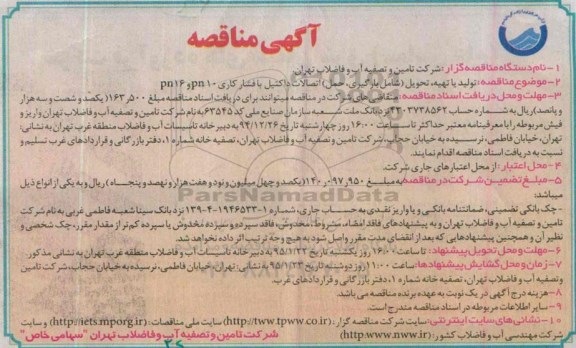 آگهی مناقصه
۱- نام دستگاه مناقصه گزار: شرکت تامین و تصفیه آب و فاضلاب تهران
۲- موضوع مناقصه: تولید یا تهیه، تحویل (شامل بارگیری، حمل) اتصالات داکتیل با فشار کاری pn۱۰ و pn۱۶
۳- مهلت و محل دریافت اسناد مناقصه: متقاضی های شرکت در مناقصه میتوانند برای دریافت اسناد مناقصه مبلغ ۱۶۳٫۵۰۰ (یکصد و شصت و سه هزار
و پانصد) ریال به شماره حساب ۴۳۰۳۷۳۸۵۶۲ نزد بانک ملت شعبه سازمان صنایع ملی کد ۶۳۵۴۵ به نام شرکت تامین و تصفیه آب و فاضلاب تهران واریز و
فیش مربوطه را با معرفینامه معتبر حداکثر تا ساعت ۱۶:۰۰ روز چهارشنبه تاریخ ۹۴/۱۲/۲۶ به دبیرخانه تاسیسات آب و فاضلاب منطقه غرب تهران به نشانی:
تهران، خیابان فاطمی، نرسیده به خیابان حجاب، شرکت تامین و تصفیه آب و فاضلاب تهران، تصفیه خانه شماره ۱، دفتر بازرگانی و قراردادهای غرب تسلیم و
نسبت به دریافت اسناد مناقصه اقدام نمایند.
۴- محل اعتبار: از محل اعتبارهای جاری شرکت.
۵- مبلغ تضمین شرکت در مناقصه: به مبلغ ۱۴۰٫۰۹۷٫۹۵۰ (یکصد و چهل میلیون و نود و هفت هزار و نهصد و پنجاه) ریال و به یکی از انواع ذیل
میباشد:
- چک بانکی تضمینی، ضمانتنامه بانکی و یا واریز نقدی به حساب جاری، شماره ۱-۱۹۴۶۵۳۳-۴-۱۳۹ نزد بانک سینا شعبه فاطمی غربی به نام شرکت
تامین و تصفیه آب و فاضلاب تهران و به پیشنهادهای فاقد امضاء، مشروط، مخدوش، فاقد سپرده و سپرده مخدوش یا سپرده کمتر از مقدار مقرر، چک شخصی و
نظیر آن و همچنین پیشنهادهایی که بعد از انقضای مدت مقرر واصل شود به هیچ وجه ترتیب اثر داده نخواهد شد.
۶- مهلت و محل تحویل پیشنهاد: تا ساعت ۱۶:۰۰ روز یکشنبه تاریخ ۹۵/۱/۲۲ به دبیرخانه تاسیسات آب و فاضلاب منطقه غرب تهران به نشانی مذکور.
۷- زمان و محل گشایش پیشنهادها: ساعت ۱۱:۰۰ روز دوشنبه تاریخ ۹۵/۱/۲۳ به نشانی: تهران، خیابان فاطمی، نرسیده به خیابان حجاب، شرکت تامین
و تصفیه آب و فاضلاب تهران، تصفیه خانه شماره ۱، دفتر بازرگانی و قراردادهای غرب.
۸- هزینه درج آگهی در یک نوبت به عهده برنده مناقصه می باشد.
۹- سایر اطلاعات مربوطه در اسناد مناقصه مندرج است.
۱۰- نشانی های سایت اینترنتی: سایت شرکت مناقصه گزار: (http://www.tpww.co.ir) سایت ملی مناقصات: (http://iets.mporg.ir) و سایت
شرکت مهندسی آب و فاضلاب کشور: (http://www.nww.ir)
شرکت تامین و تصفیه آب و فاضلاب تهران "سهامی خاص"
ParsNamadData